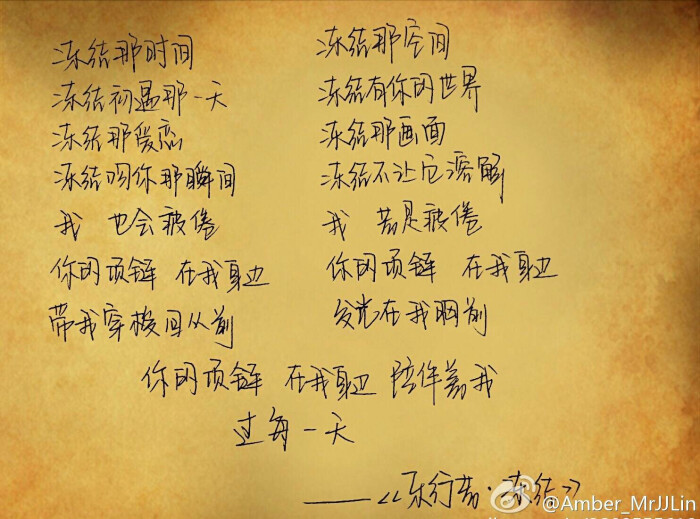 冻结那时间
冻结初遇那一天
冻结那爱恋
冻结吻你那瞬间
我 也会疲倦
你的项链 在我身边
带我穿梭回从前
冻结那空间
冻结有你的世界
冻结那画面
冻结不让它溶解
我 若是疲倦
你的项链 在我身边
发光在我胸前
你的项链 在我身边 陪伴着我
过每一天
——《乐行者·冻结》
@Amber_MrJJLin